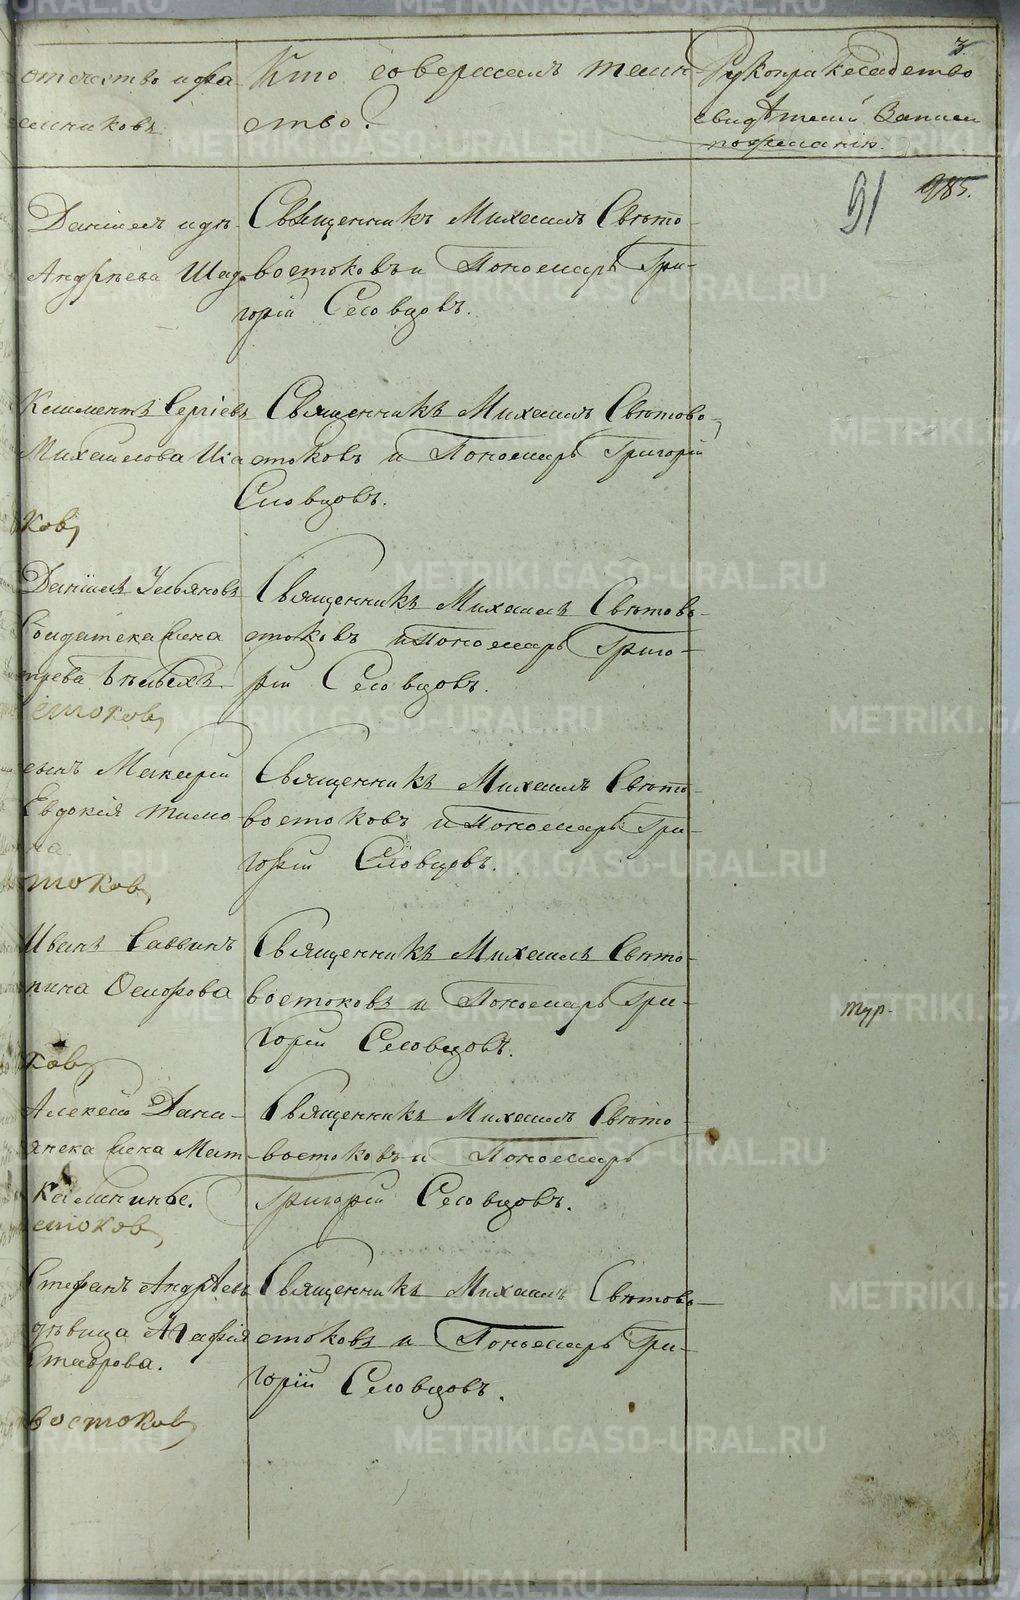 3.
отчество и фа-
милиювъ.
Кто совершалъ таин-
ство?
Рукоприкладство
свидѣтелей записи
по желанію.
91 985.
Даніилъ
Андрѣева Шад-
Священникъ Михаилъ Свѣто-
востоковъ и Пономарь Гри-
горій Словцовъ.
Климентъ Сергіевъ
Михаилова Иса
ковъ
Священникъ Михаилъ Свѣтово-
стоковъ и Пономарь Григорій
Словцовъ.
Даніилъ Ульяновъ
Солдатска
Бѣлыхъ
стоковъ
Священникъ Михаилъ Свѣтовъ-
стоковъ и Пономарь Григо-
рій Словцовъ.
сынъ Макарій
Евдокія Тимо
на
стоковъ
Священникъ Михаилъ Свѣто-
востоковъ и Пономарь Гри-
горій Словцовъ.
Иванъ Саввинъ
Осипова
ковъ
Священникъ Михаилъ Свѣто-
востоковъ и Пономарь Гри-
горій Словцовъ.
тур.
Алексѣй Дани-
Мат-
Калининъ.
стоковъ
Священникъ Михаилъ Свѣто-
востоковъ и Пономарь
Григорій Словцовъ.
Стефанъ Андрѣевъ
дѣвица Марія
востоковъ
Священникъ Михаилъ Свѣтово-
стоковъ и Пономарь Гри-
горій Словцовъ.
METRIKI.GASO-URAL.RU